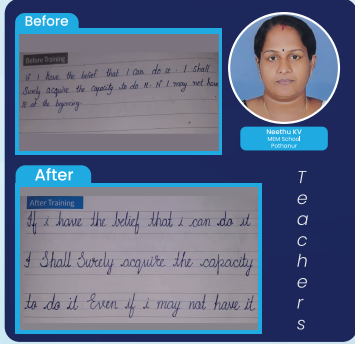 Before
Before Training
If I have the belief that I can do it. I shall
Surely acquire the capacity to do it. If I may not have
it at the begining.
Neethu KV
MEM School
Pothanur
After
After Training
If i have the belief that i can do it
I Shall Surely acquire the capacity
to do it Even if i may not have it
Teachers